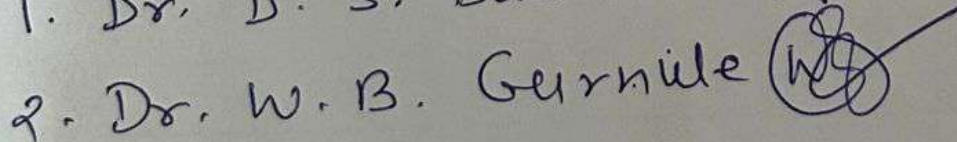 1. Dr. D. S.
2. Dr. W. B. Gurnule